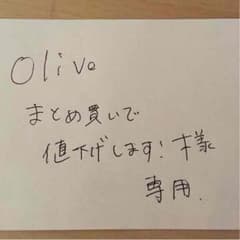 Olive
まとめ買いで
値下げします!様
専用.